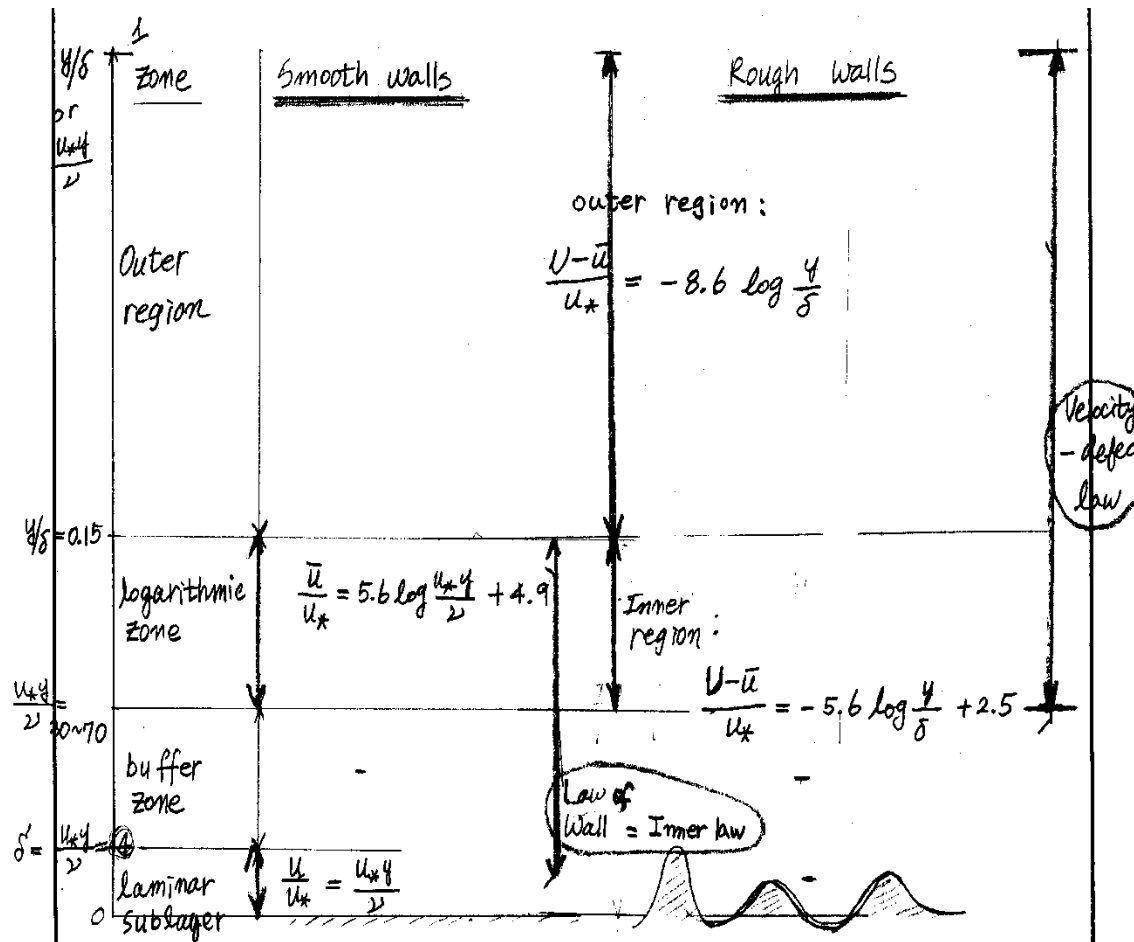 1
y/δ
or
u*y/ν
Zone
Smooth walls
Rough walls
outer region:
(U-ū)/u* = -8.6 log y/δ
Outer
region
Velocity
- defec
law
y/δ = 0.15
logarithmic
zone
ū/u* = 5.6 log u*y/ν + 4.9
Inner
region:
(U-ū)/u* = -5.6 log y/δ + 2.5
u*y/ν =
30~70
buffer
zone
Law of
Wall = Inner law
δ' = u*y/ν = 4
laminar
sublager
u/u* = u*y/ν
0